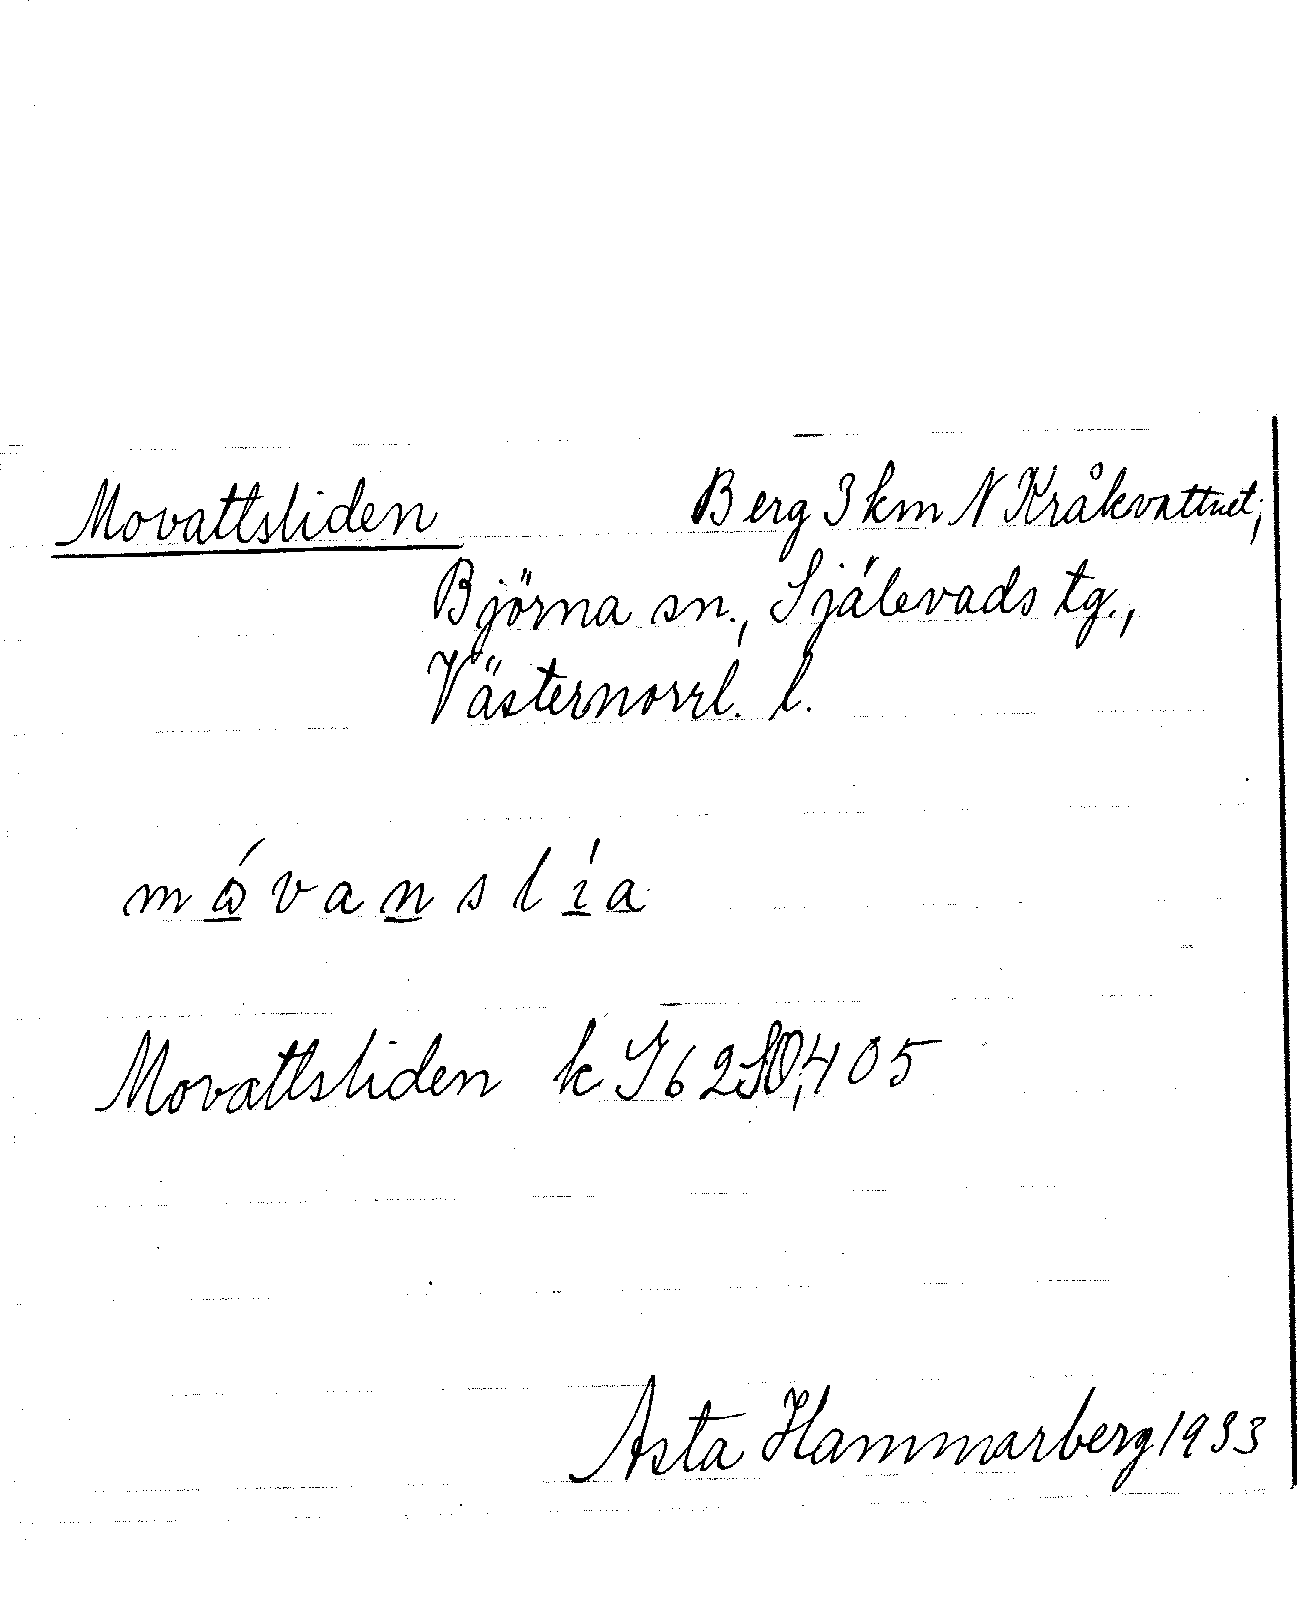 Movattsliden Berg 3 km N Kråkvattnet,
Björna sn., Själevads tg.,
Västernorrl. l.
móvanslía
Movattsliden k G 62 SO, 405
Asta Hammarberg 1933